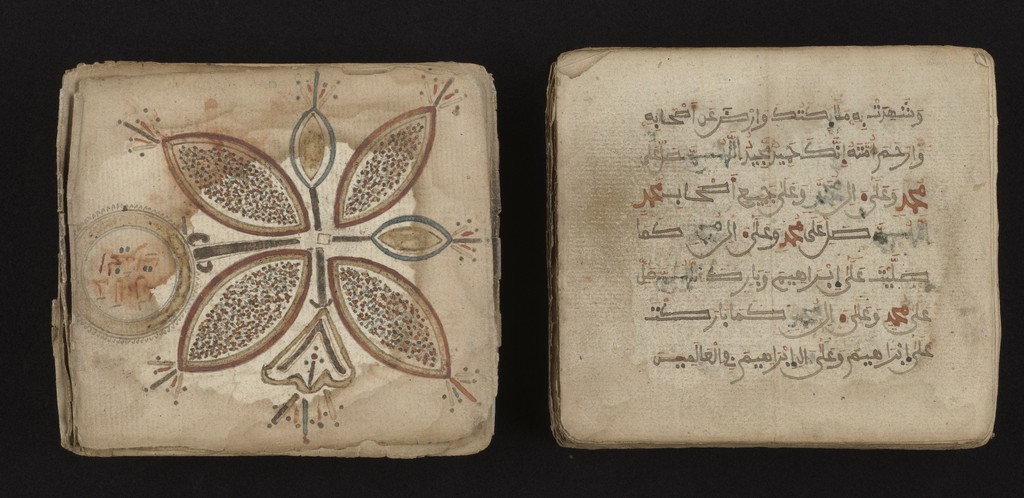 وشهدت به ملائكتك وارض عن أصحابه
وارحم أمته إنك حميد مجيد اللهم صل على
محمد وعلى ال محمد وعلى جميع أصحاب محمد
اللهم صل على محمد وعلى ال محمد كما
صليت على إبراهيم وبارك اللهم على
محمد وعلى ال محمد كما باركت
على إبراهيم وعلى ال إبراهيم في العالمين